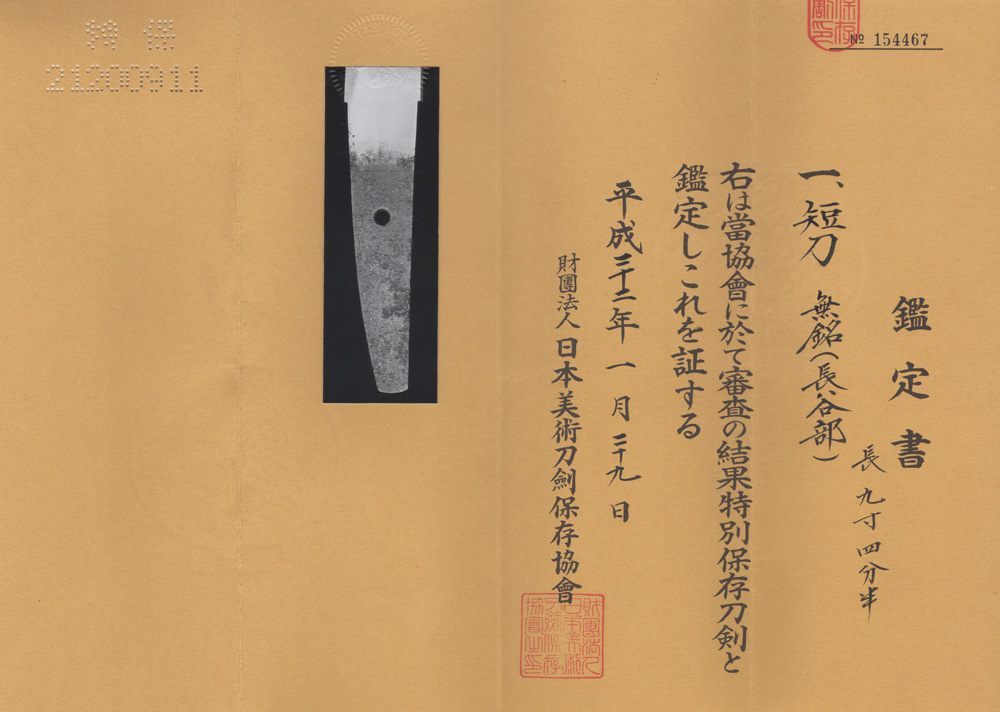 鑑定書
№ 154467
一、短刀 無銘(長谷部)
長九寸四分半
右は當協會に於て審査の結果特別保存刀剣と
鑑定しこれを証する
平成二十二年一月二十九日
財團法人日本美術刀劍保存協會
財團法人
日本美術
刀劍保存
協會之印
特保
21200911